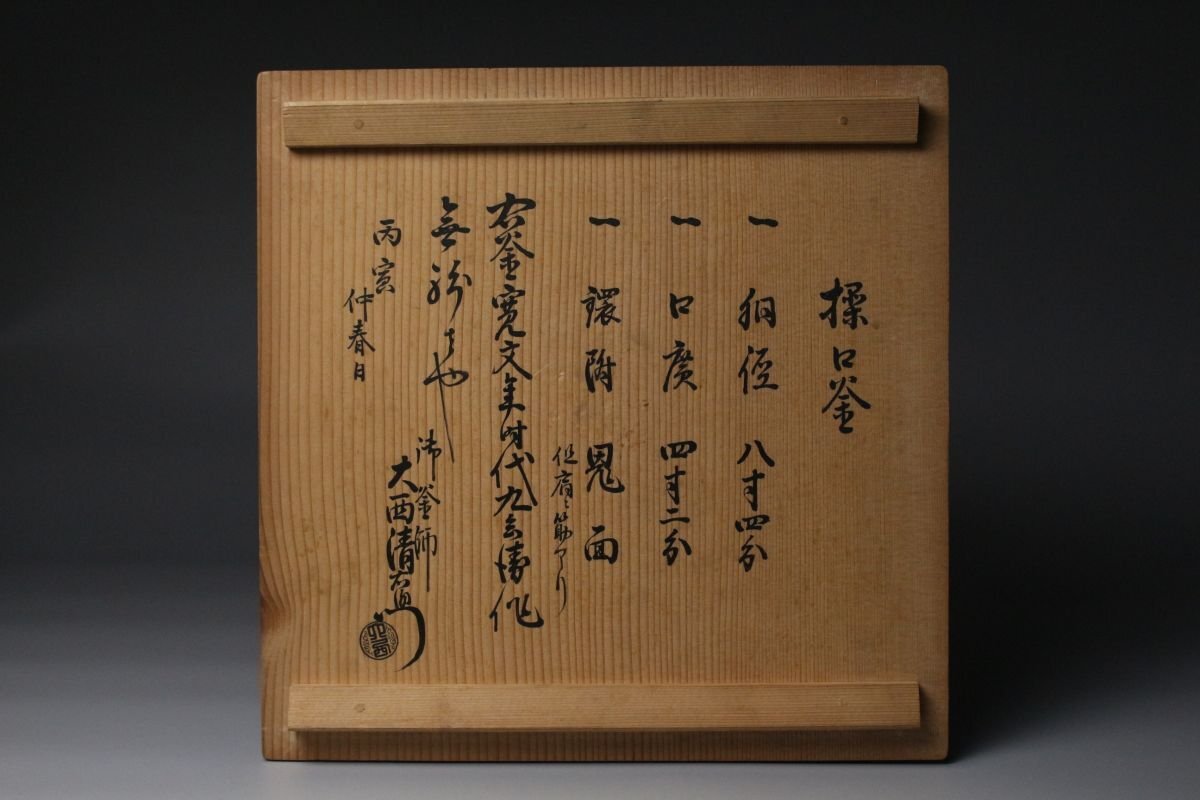 操口釜
一 胴径 八寸四分
一 口廣 四寸二分
一 鐶附 鬼面
但肩ニ筋アリ
右釜寛文年時代九兵衛作
無紛者也
丙寅
仲春日
御釜師
大西清右衛門
大西